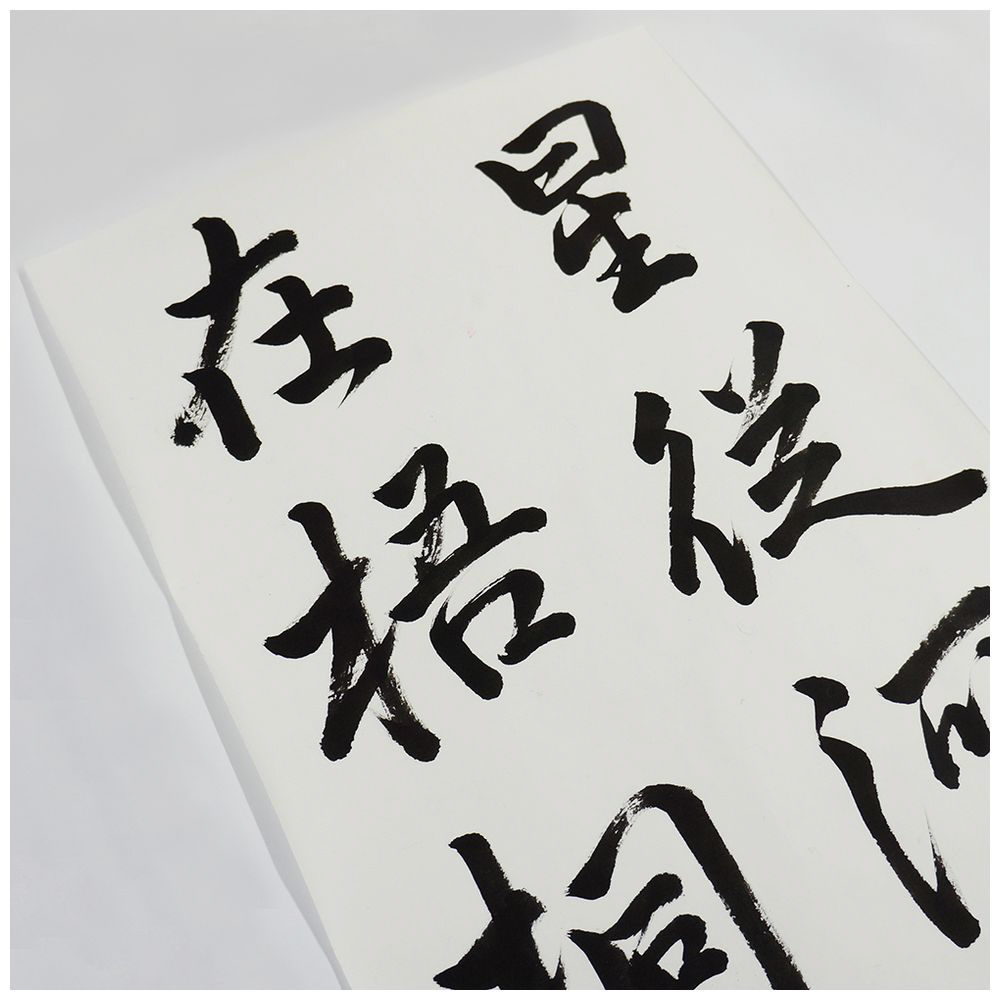 星從河
在梧桐